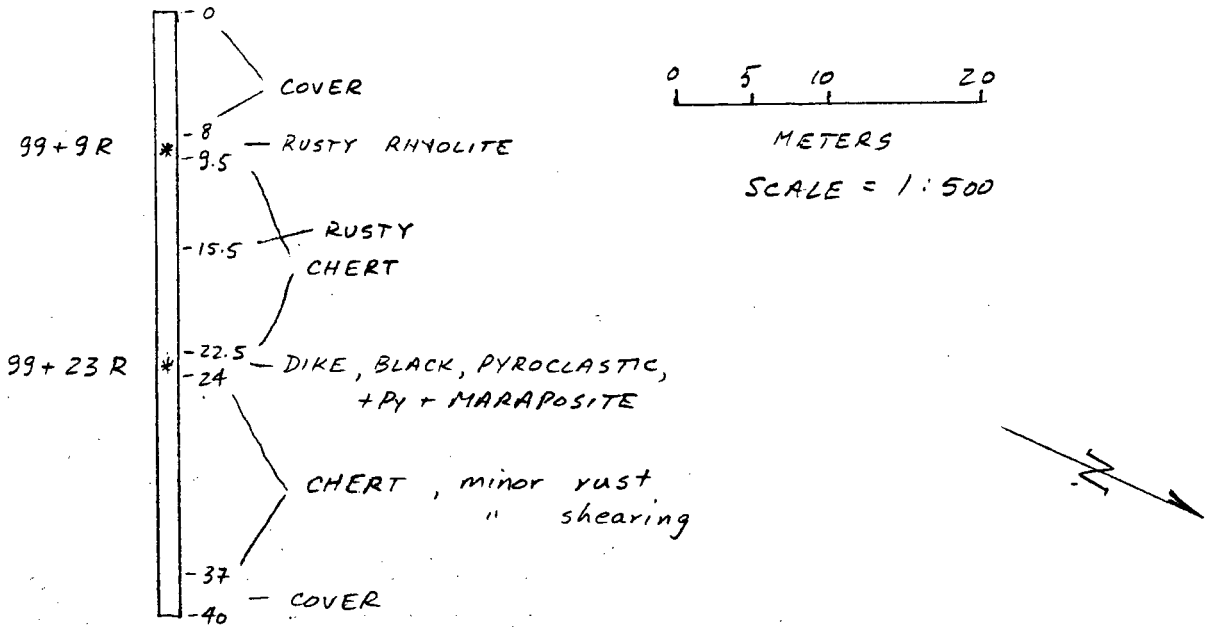 -0
COVER
0 5 10 20
METERS
SCALE = 1:500
-8
99+9R * -9.5 - RUSTY RHYOLITE
-15.5 RUSTY
CHERT
-22.5
99+23R * -24 - DIKE, BLACK, PYROCLASTIC,
+Py + MARAPOSITE
CHERT, minor rust
" shearing
N
-37
-40 - COVER